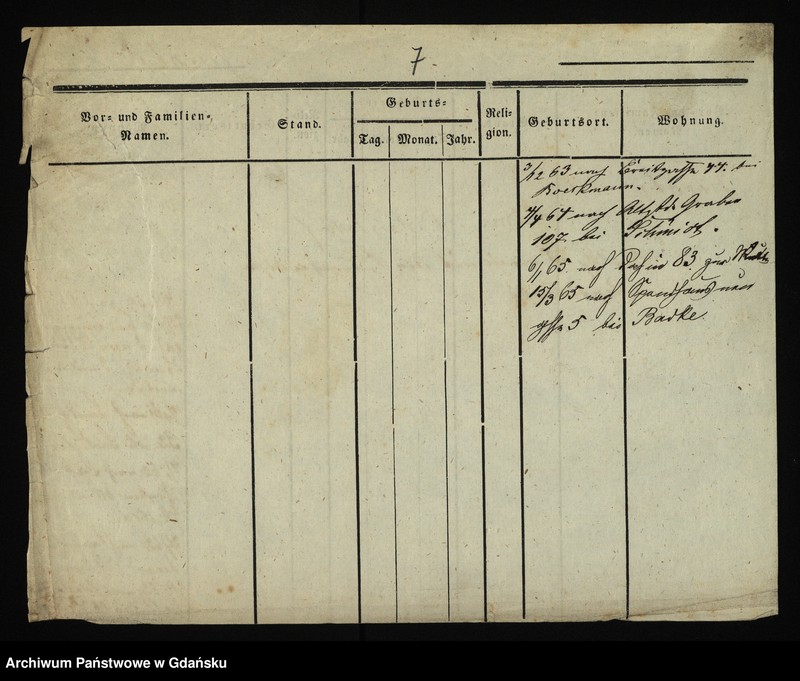 7.
Vor= und Familien=
Namen.
Stand.
Geburts=
Tag. Monat. Jahr.
Reli=
gion.
Geburtsort.
Wohnung.
3/12 63 nach Breitgasse 44. bei
Boeckmann.
7/4 64 nach Altstdt Graben
107. bei Schmidt.
6/1 65 nach 83 zur
15/3 65 nach Spendhausneu
gsse 5 bei Badke.
Archiwum Państwowe w Gdańsku